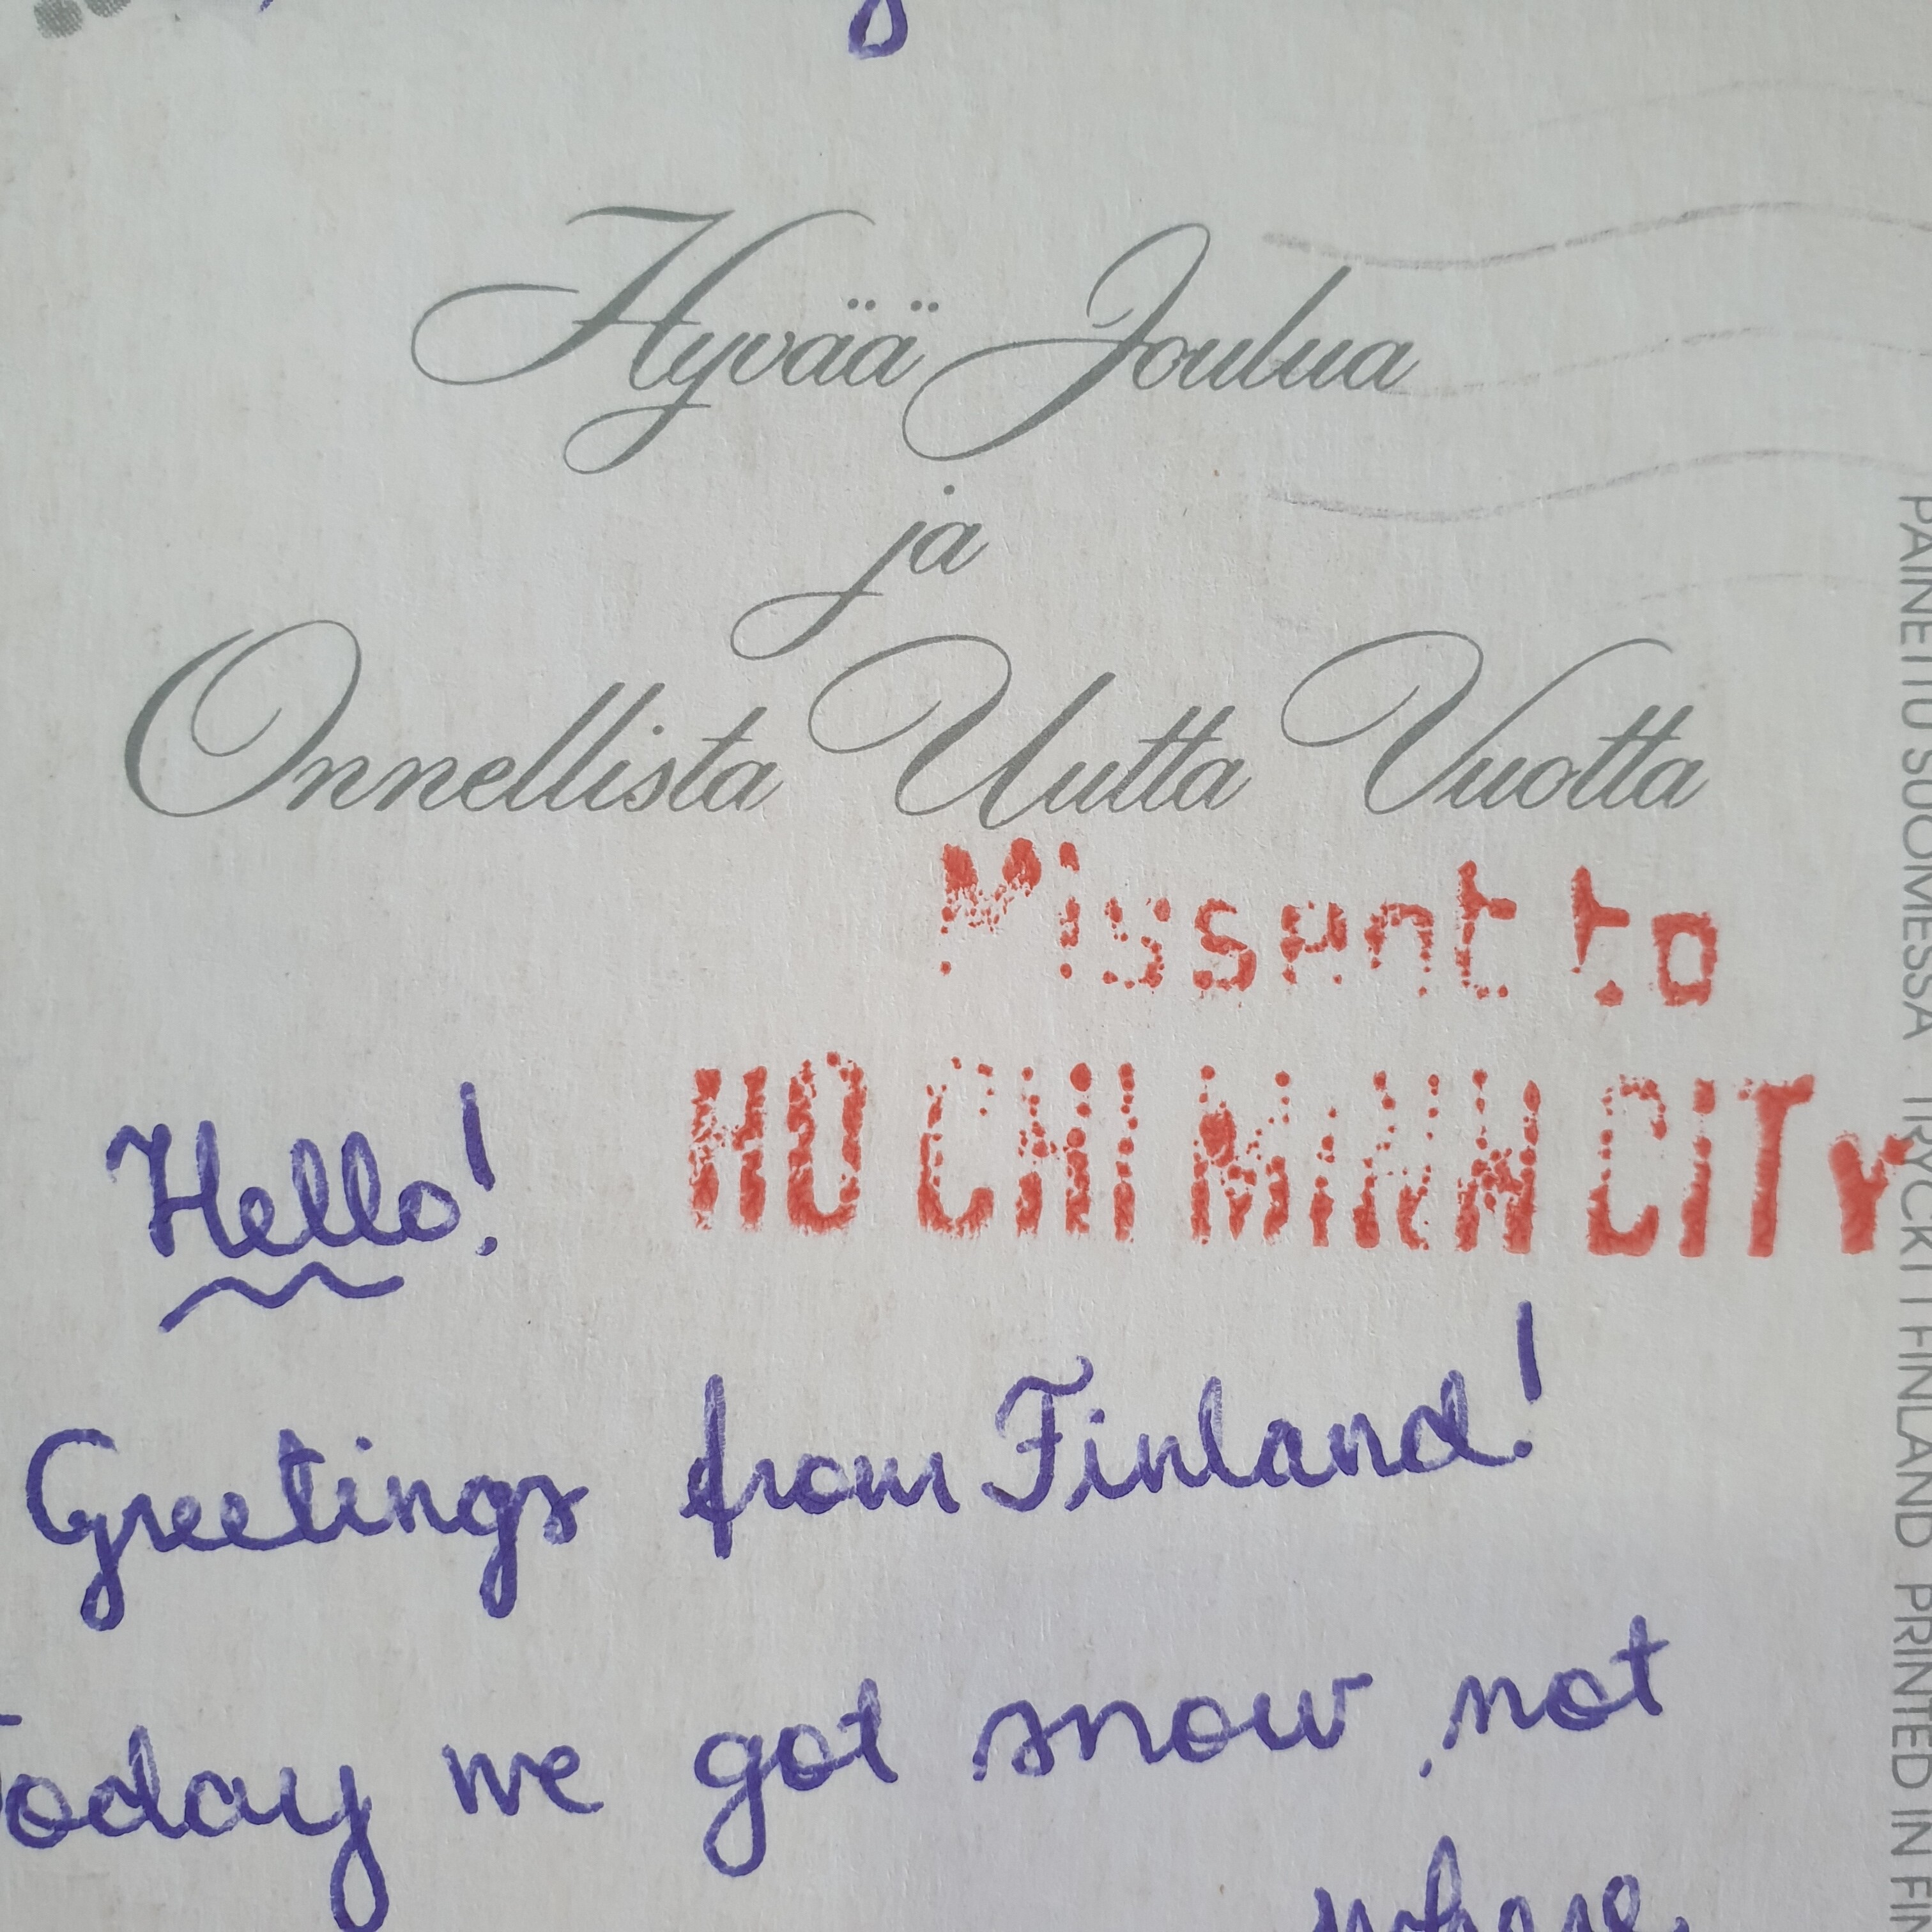 Hyvää Joulua
ja
Onnellista Uutta Vuotta
Missent to
HO CHI MINH CITY
Hello!
Greetings from Finland!
Today we got snow, not
where
PAINETTU SUOMESSA TRYCKT I FINLAND PRINTED IN FIN